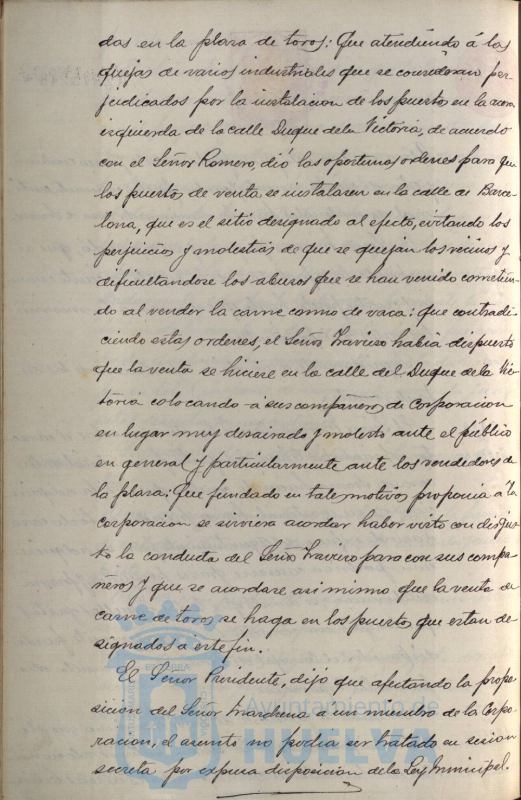 das en la plaza de toros: Que atendiendo á las
quejas de varios industriales que se consideran per-
judicados por la instalacion de los puestos en la acera
izquierda de la calle Duque de la Victoria, de acuerdo
con el Señor Romero, dió las oportunas ordenes para que
los puestos de venta se instalasen en la calle de Barce-
lona, que es el sitio designado al efecto, evitando los
perjuicios y molestias de que se quejan los vecinos y
dificultandose los abusos que se han venido cometien-
do al vender la carne como de vaca: que contradi-
ciendo estas ordenes, el Señor Traviero habia dispuesto
que la venta se hiciere en la calle del Duque de la Vic-
toria colocando á sus compañeros de Corporacion
en lugar muy desairado y molesto ante el público
en general y particularmente ante los vendedores de
la plaza: Que fundado en tales motivos proponia á la
Corporacion se sirviera acordar haber visto con disgus-
to la conducta del Señor Traviero para con sus compa-
ñeros y que se acordare asi mismo que la venta de
carne de toros se haga en los puestos que estan de-
signados á este fin.
El Señor Presidente, dijo que afectando la propo-
sicion del Señor Marchena a un miembro de la Corpo-
racion, el asunto no podia ser tratado en sesion
secreta por expresa disposicion de la Ley Municipal.
Ayuntamiento de
HUELVA